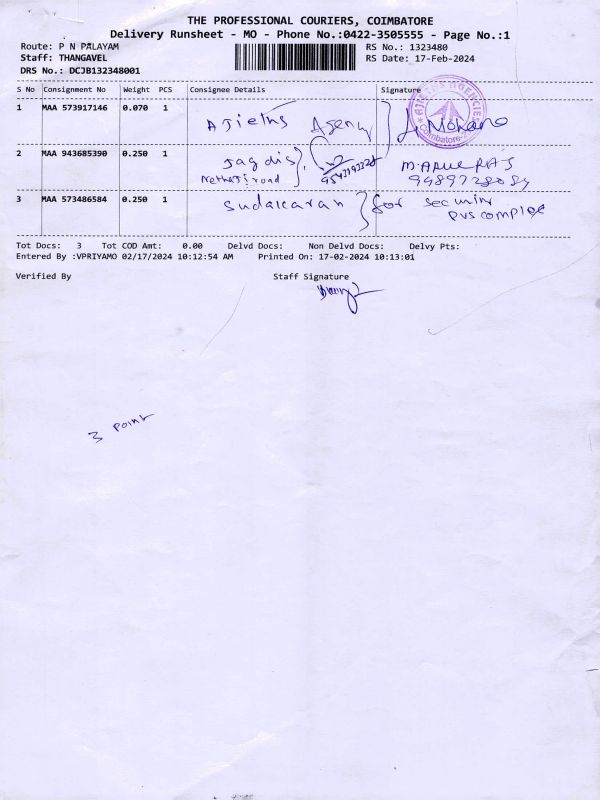 THE PROFESSIONAL COURIERS, COIMBATORE
Delivery Runsheet - MO - Phone No.:0422-3505555 - Page No.:1
Route: P N PALAYAM RS No.: 1323480
Staff: THANGAVEL RS Date: 17-Feb-2024
DRS No.: DCJB132348001
S No Consignment No Weight PCS Consignee Details Signature
1 MAA 573917146 0.070 1
Agency Mohano
AJIETHS AGENCIES Coimbatore
2 MAA 943685390 0.250 1
Jagdis M. ARUL RAJ
road
3 MAA 573486584 0.250 1
Sudakaran for
PVS complex
Tot Docs: 3 Tot COD Amt: 0.00 Delvd Docs: Non Delvd Docs: Delvy Pts:
Entered By :VPRIYAMO 02/17/2024 10:12:54 AM Printed On: 17-02-2024 10:13:01
Verified By Staff Signature
3 point